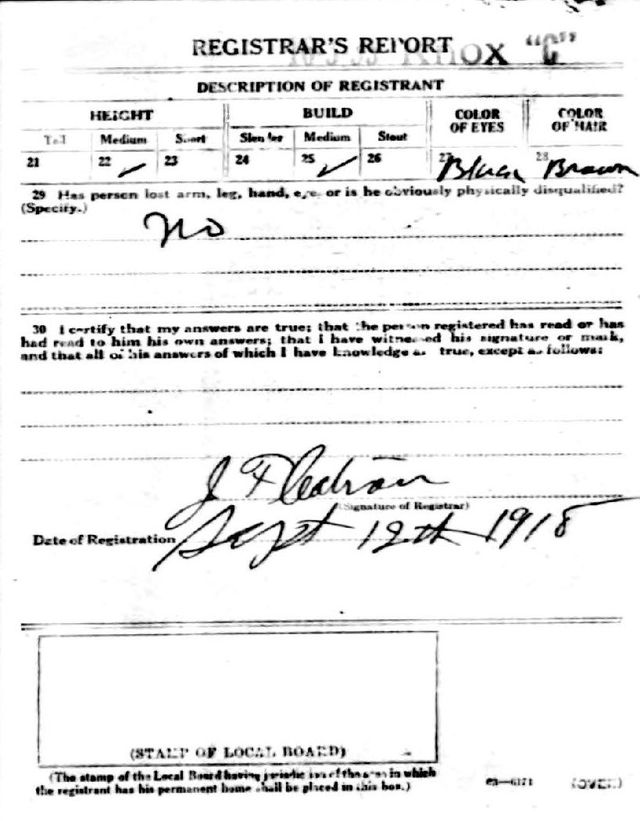 REGISTRAR'S REPORT
KNOX "C"
DESCRIPTION OF REGISTRANT
HEIGHT BUILD COLOR OF EYES COLOR OF HAIR
Tall Medium Short Slender Medium Stout
21 22 ✓ 23 24 25 ✓ 26 27 28 Brown
29 Has person lost arm, leg, hand, eye, or is he obviously physically disqualified?
(Specify.)
No
30 I certify that my answers are true; that the person registered has read or has
had read to him his own answers; that I have witnessed his signature or mark,
and that all of his answers of which I have knowledge are true, except as follows:
J F
(Signature of Registrar)
Date of Registration Sept 12th 1918
(STAMP OF LOCAL BOARD)
(The stamp of the Local Board having jurisdiction of the area in which
the registrant has his permanent home shall be placed in this box.)
03—6171 (OVER)